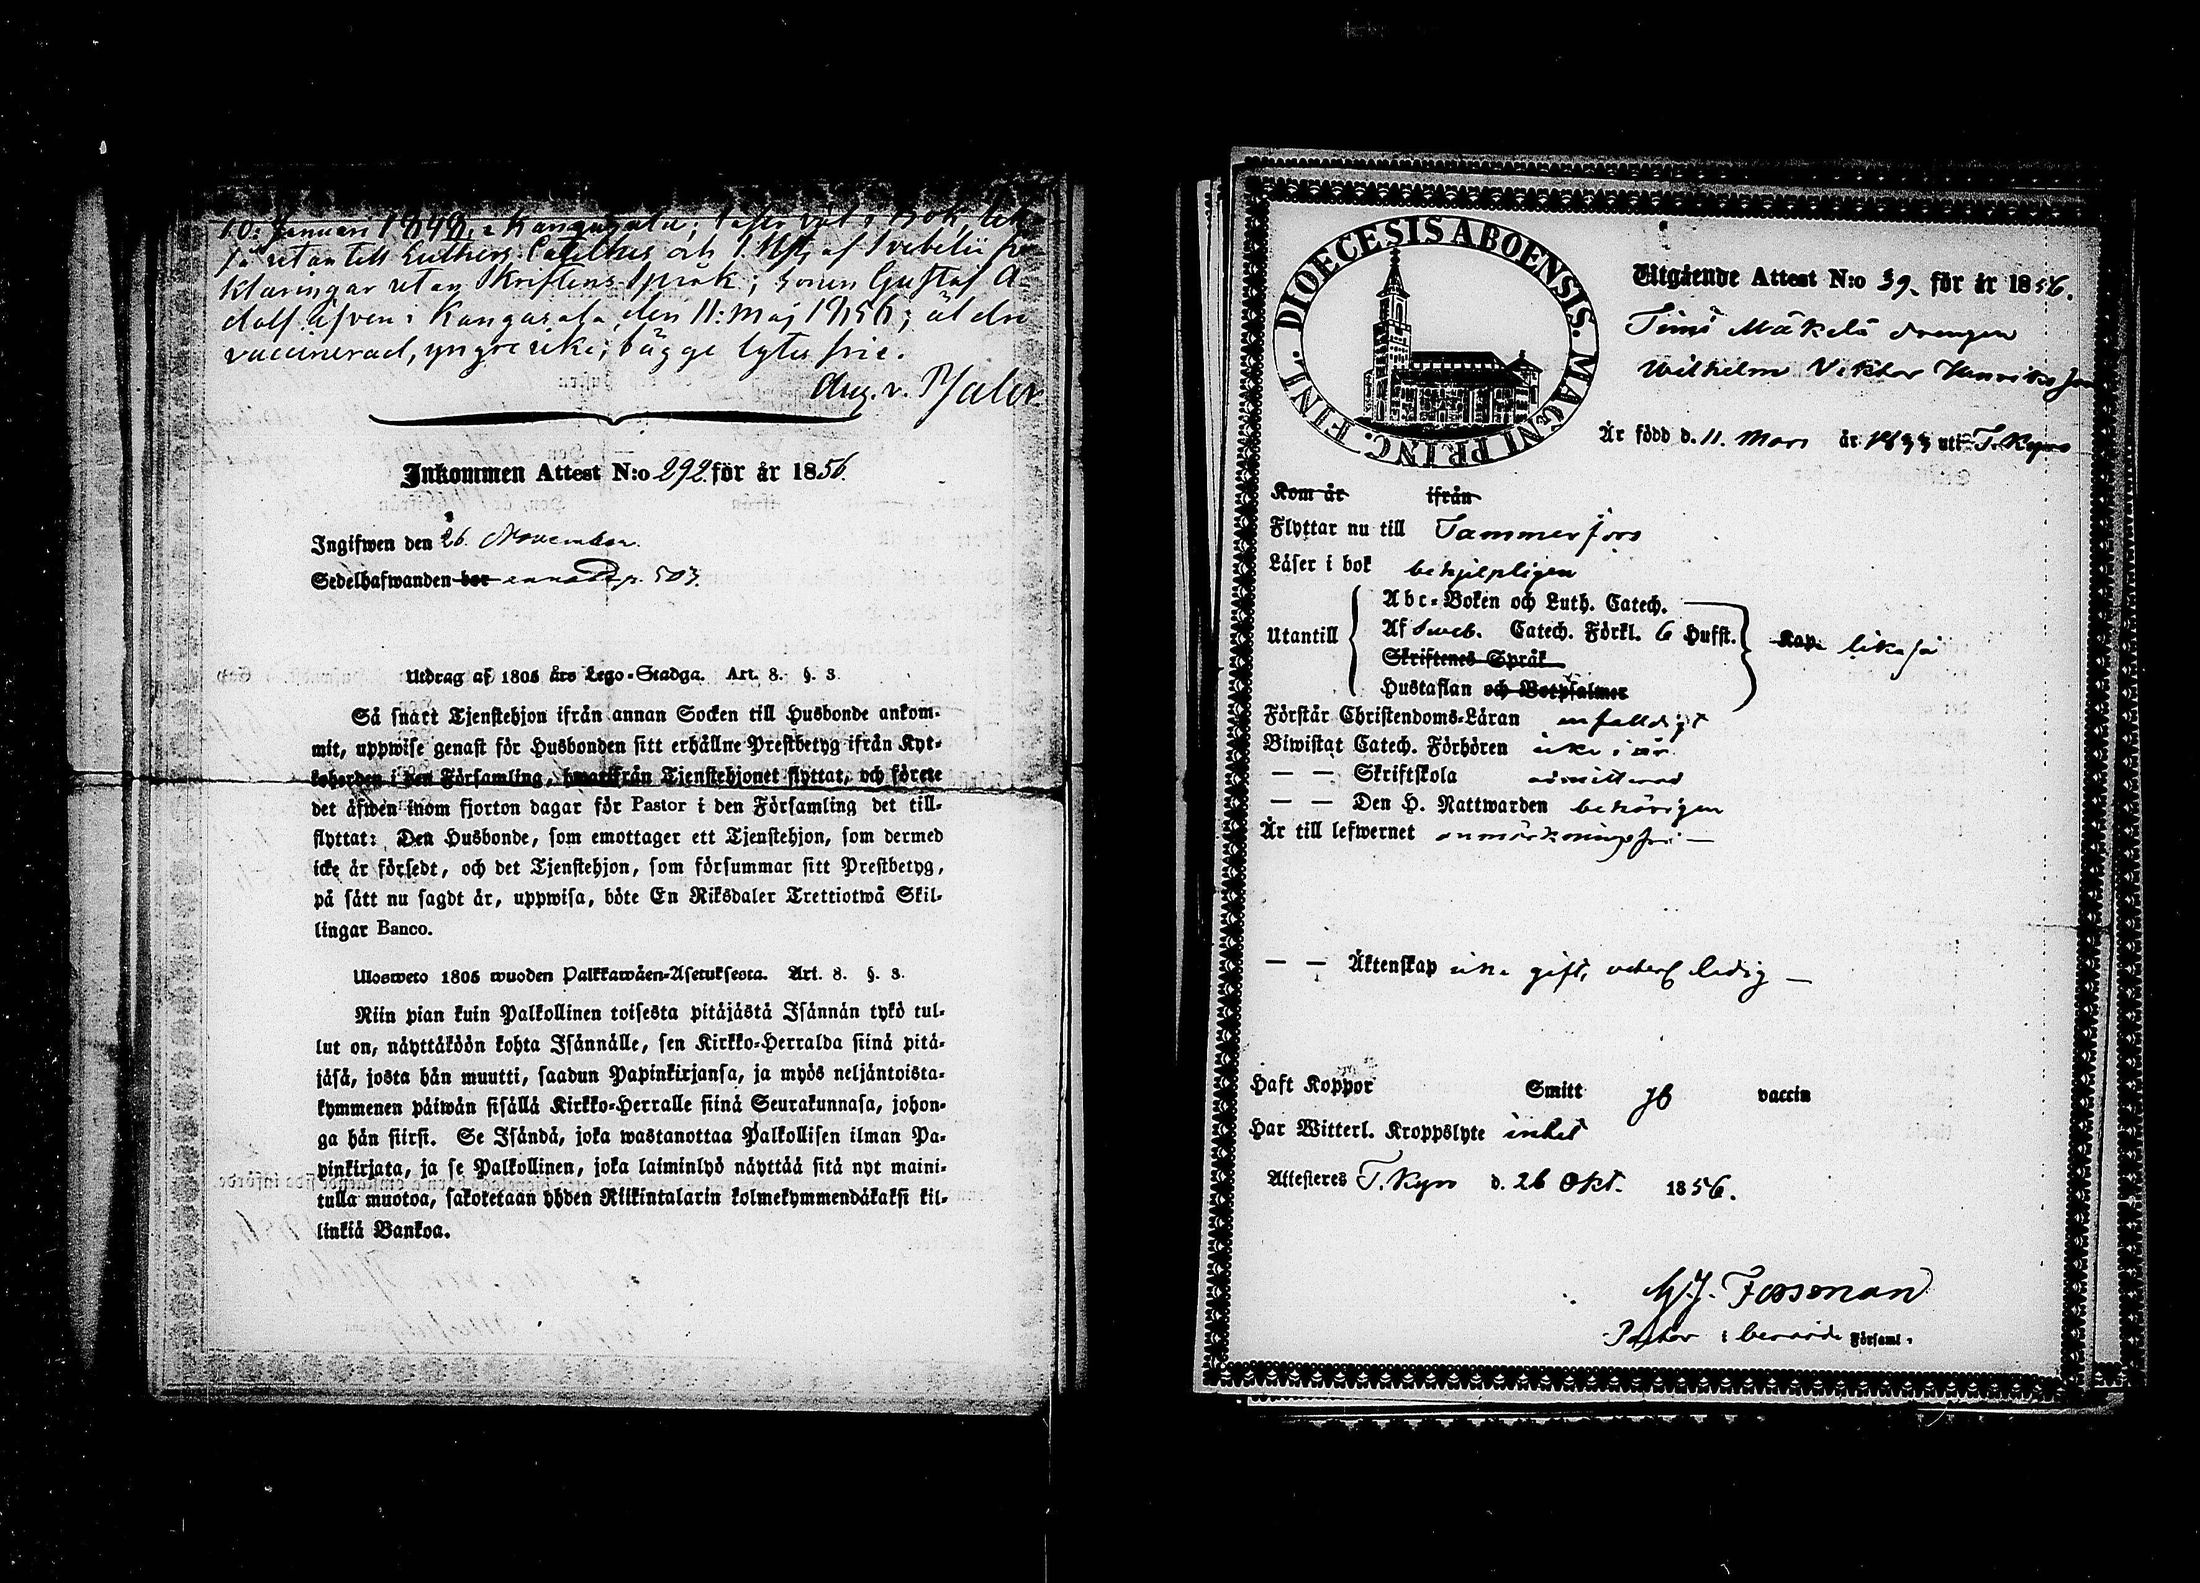 10: Januari 1848, i Kangasala; läser väl i bok, lik-
så utantill Luthers Cateches och 1. Hfst. af Svebelii för-
klaringar utan Skriftens språk; sonen Gustaf A-
dolf äfven i Kangasala den 11: maj 1856; äldre
vaccinerad, yngre icke; bägge lytes frie.
Aug. v. Pfaler.
Inkommen Attest N:o 292. för år 1856.
Ingifwen den 26. November.
Sedelhafwanden bor pag. 503.
Utdrag af 1805 års Lego-Stadga. Art. 8. §. 3.
Så snart Tjenstehjon ifrån annan Socken till Husbonde ankom-
mit, uppwise genast för Husbonden sitt erhållne Prestbetyg ifrån Kyr-
koherden i den Församling, hwarifrån Tjenstehjonet flyttat, och förete
det äfwen inom fjorton dagar för Pastor i den Församling det till-
flyttat: Den Husbonde, som emottager ett Tjenstehjon, som dermed
icke är försedt, och det Tjenstehjon, som försummar sitt Prestbetyg,
på sätt nu sagdt är, uppwisa, böte En Riksdaler Trettiotwå Skil-
lingar Banco.
Ulosweto 1805 wuoden Palkkawäen-Asetuksesta. Art. 8. §. 3.
Niin pian kuin Palkollinen toisesta pitäjästä Isännän tykö tul-
lut on, näyttäköön kohta Isännälle, sen Kirkko-Herralda siinä pitä-
jäsä, josta hän muutti, saadun Papinkirjansa, ja myös neljäntoista-
kymmenen päiwän sisällä Kirkko-Herralle siinä Seurakunnasa, johon-
ga hän siirsi. Se Isändä, joka wastanottaa Palkollisen ilman Pa-
pinkirjata, ja se Palkollinen, joka laiminlyö näyttää sitä nyt maini-
tulla muotoa, sakotetaan yhden Riikintalarin kolmekymmendäkaksi kil-
linkiä Bankoa.
DIOECESIS ABOENSIS. MAGNI PRINC. FINL.
Utgående Attest N:o 39. för år 1856.
Timi Mäkelä drengen
Wilhelm Viktor Henriksson
Är född d. 11. Mars år 1833 uti T. Kyro
Kom år ifrån
Flyttar nu till Tammerfors
Läser i bok behjelpligen
Abc-Boken och Luth. Catech.
Utantill Af Sweb. Catech. Förkl. 6 Hufst. Kap. likaså
Skriftenes Språk
Hustaflan och Botpsalmer
Förstår Christendoms-Läran enfalldigt
Biwistat Catech. Förhören icke i år
— — Skriftskola admitterad
— — Den H. Nattwarden behörigen
Är till lefwernet anmärkningsfri —
— — Äktenskap icke gift, ledig —
Haft Koppor Smitt vaccin
Har Witterl. Kroppslyte intet
Attesteres T. Kyro d. 26 Okt. 1856.
G. J. Forsman
Pastor i berörde Församl.